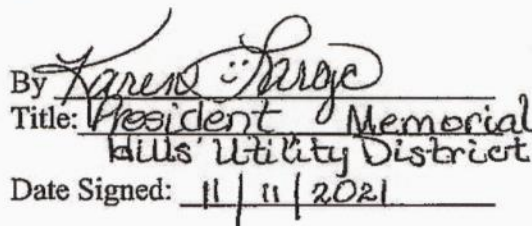 By Karen Large
Title: President Memorial
Hills' Utility District
Date Signed: 11/11/2021